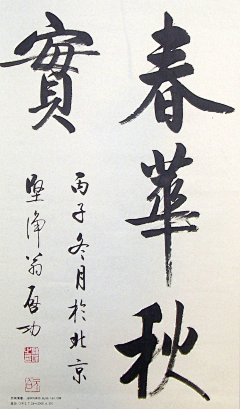 春華秋
實
丙子冬月於北京
堅淨翁启功